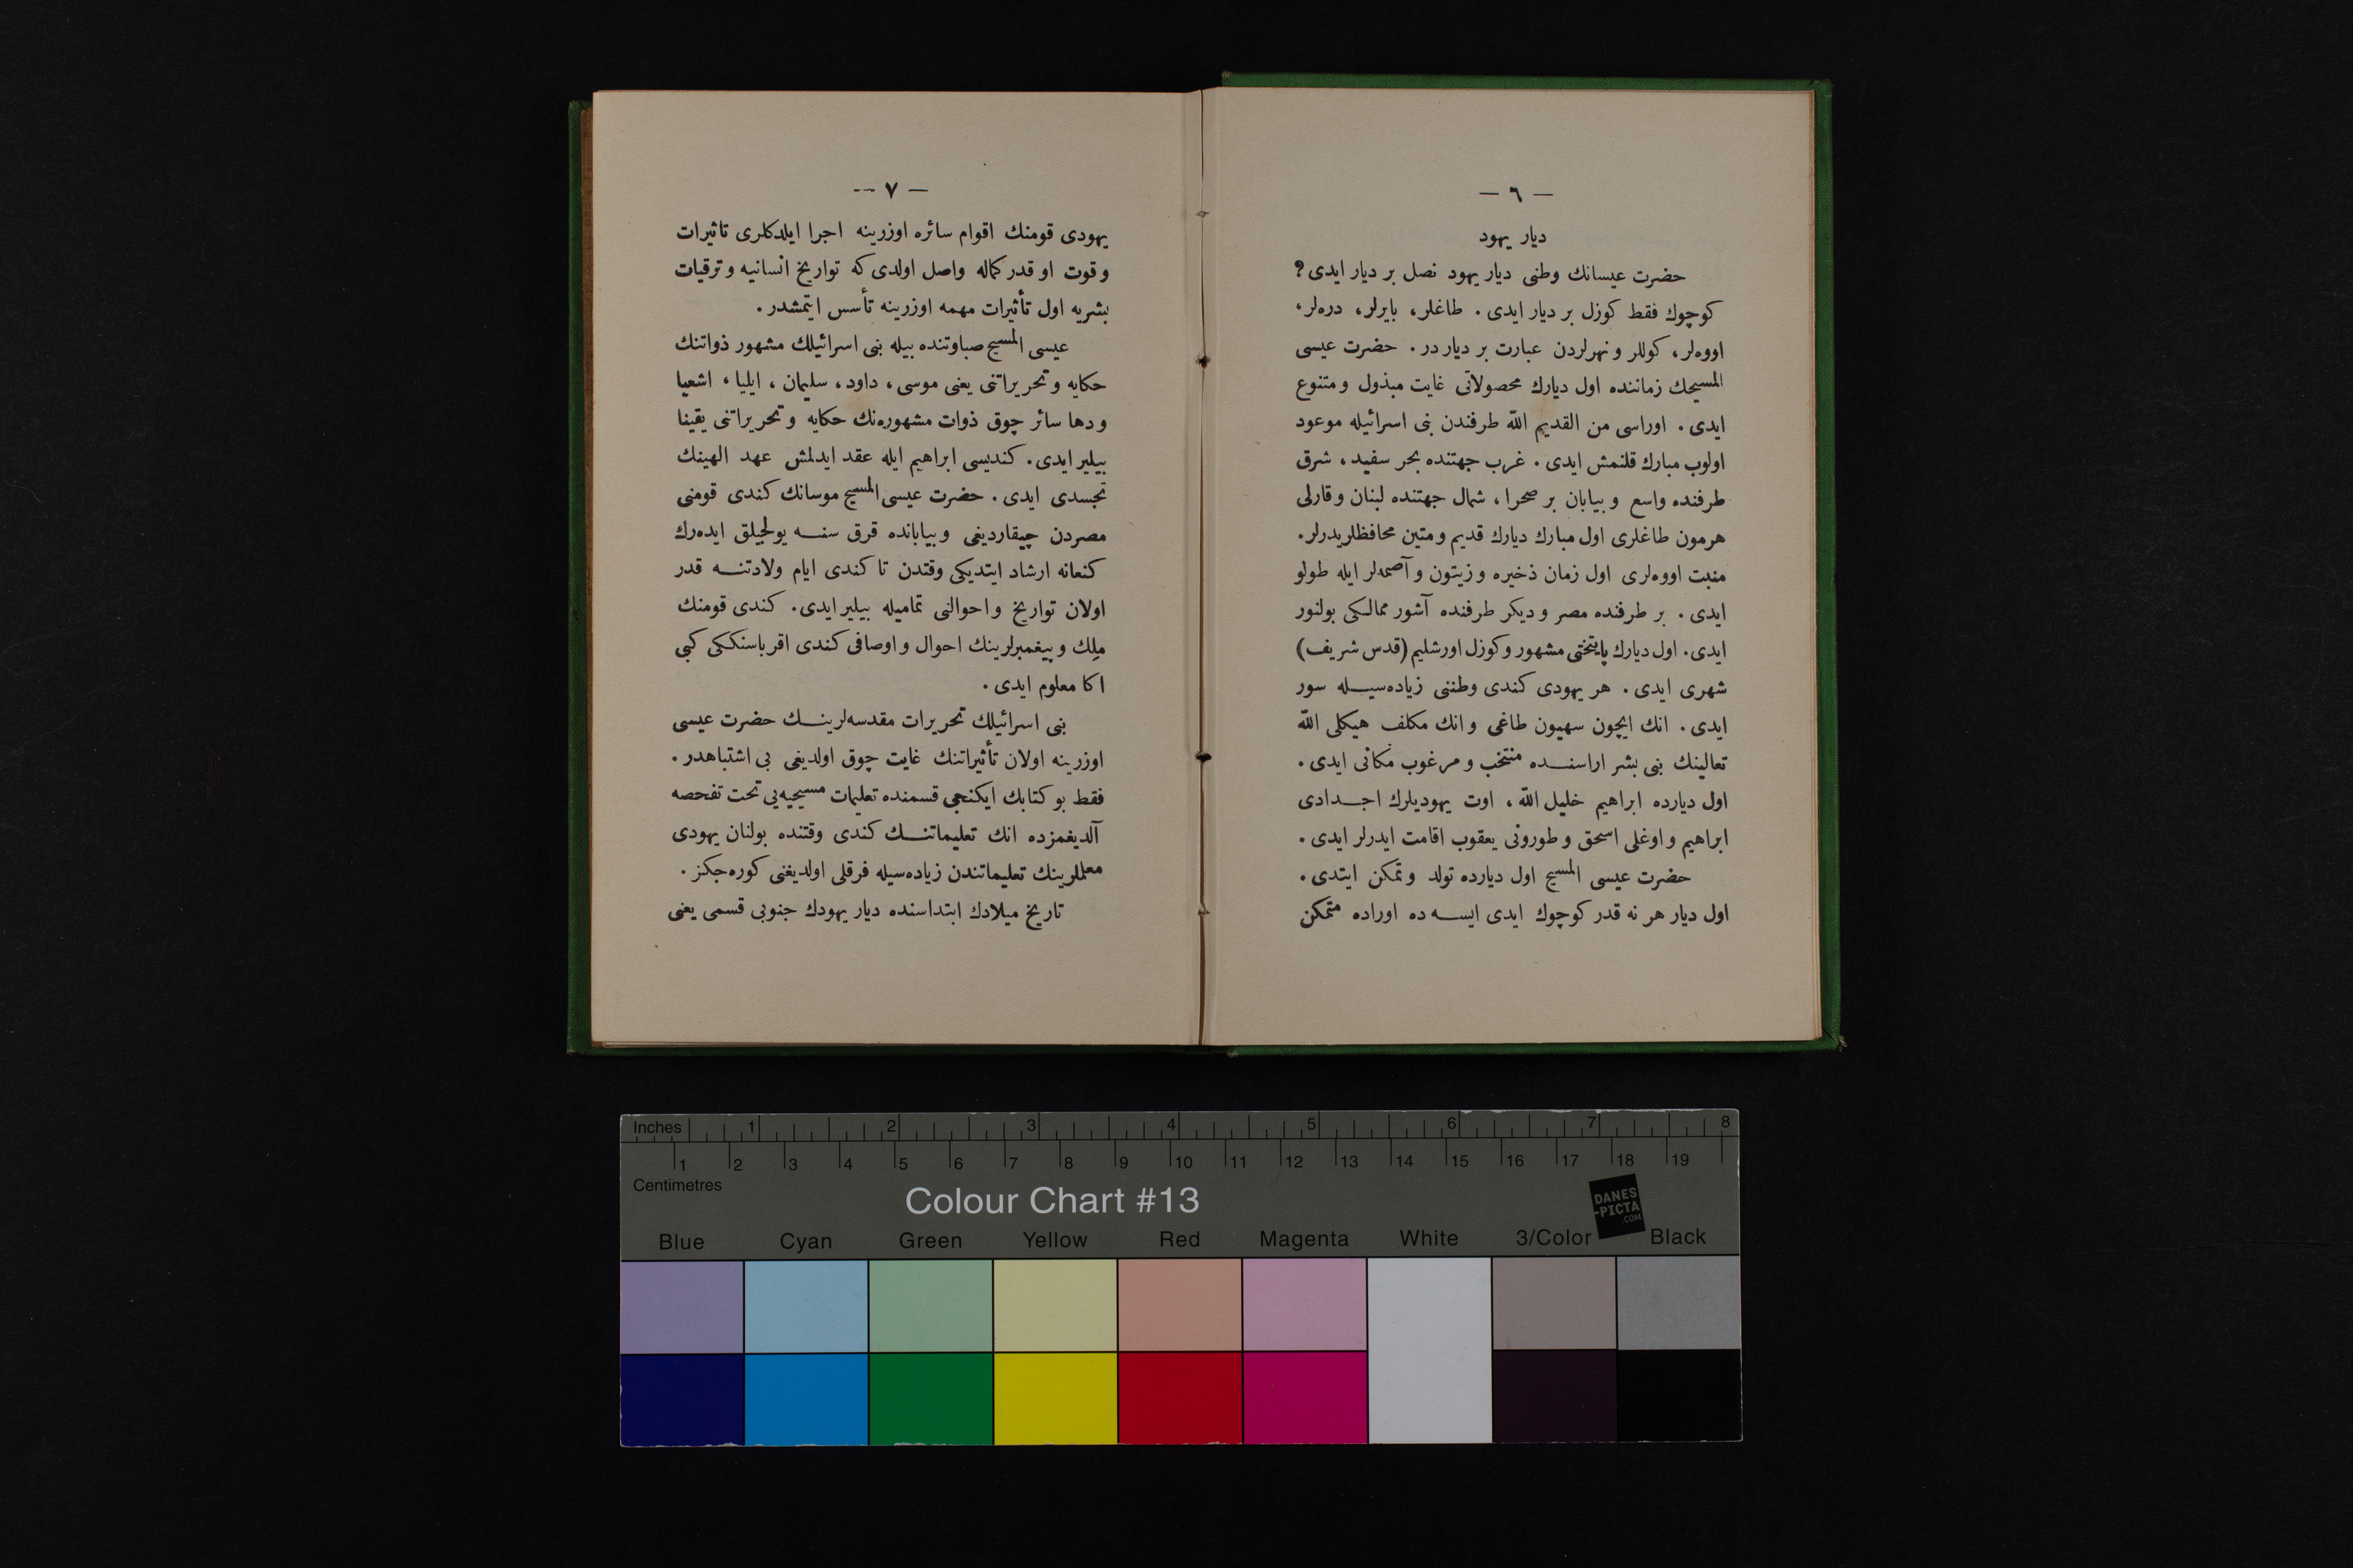 — ٦ —
ديار يهود
حضرت عيسانك وطنى ديار يهود نصل بر ديار ايدى ؟
كوچوك فقط كوزل بر ديار ايدى . طاغلر ، بايرلر ، دره‌لر ،
اووه‌لر ، كوللر و نهرلردن عبارت بر ديار در . حضرت عيسى
المسيحك زماننده اول ديارك محصولاتى غايت مبذول و متنوع
ايدى . اوراسى من القديم اللّه طرفندن بنى اسرائيله موعود
اولوب مبارك قلنمش ايدى . غرب جهتنده بحر سفيد ، شرق
طرفنده واسع و بيابان بر صحرا ، شمال جهتنده لبنان و قارلى
هرمون طاغلرى اول مبارك ديارك قديم و متين محافظلريدرلر.
منبت اووه‌لرى اول زمان ذخيره و زيتون و آصمه‌لر ايله طولو
ايدى . بر طرفنده مصر و ديكر طرفنده آشور ممالكى بولنور
ايدى. اول ديارك پايتختى مشهور و كوزل اورشليم (قدس شريف)
شهرى ايدى . هر يهودى كندى وطننى زياده‌سيله سور
ايدى . انك ايچون سهيون طاغى و انك مكلف هيكلى اللّه
تعالينك بنى بشر اراسنده منتخب و مرغوب مكانى ايدى .
اول ديارده ابراهيم خليل اللّه ، اوت يهوديلرك اجدادى
ابراهيم و اوغلى اسحق و طورونى يعقوب اقامت ايدرلر ايدى .
حضرت عيسى المسيح اول ديارده تولد و تمكن ايتدى .
اول ديار هر نه قدر كوچوك ايدى ايسه ده اوراده متمكن
— ٧ —
يهودى قومنك اقوام سائره اوزرينه اجرا ايلدكلرى تاثيرات
و قوت او قدر كماله واصل اولدى كه تواريخ انسانيه و ترقيات
بشريه اول تأثيرات مهمه اوزرينه تأسس ايتمشدر .
عيسى المسيح صباوتنده بيله بنى اسرائيلك مشهور ذواتنك
حكايه و تحريراتنى يعنى موسى ، داود ، سليمان ، ايليا ، اشعيا
و دها سائر چوق ذوات مشهوره‌نك حكايه و تحريراتنى يقينا
بيلير ايدى . كنديسى ابراهيم ايله عقد ايدلمش عهد الهينك
تجسدى ايدى . حضرت عيسى المسيح موسانك كندى قومنى
مصردن چيقارديغى و بياباندە قرق سنه يولجيلق ايده‌رك
كنعانه ارشاد ايتديكى وقتدن تا كندى ايام ولادتنه قدر
اولان تواريخ و احوالنى تماميله بيلير ايدى . كندى قومنك
ملِك و پيغمبرلرينك احوال و اوصافى كندى اقرباسنككى كبى
اكا معلوم ايدى .
بنى اسرائيلك تحريرات مقدسه‌لرينك حضرت عيسى
اوزرينه اولان تأثيراتنك غايت چوق اولديغى بى اشتباهدر .
فقط بو كتابك ايكنجى قسمنده تعليمات مسيحيه‌يى تحت تفحصه
آلديغمزده انك تعليماتنك كندى وقتنده بولنان يهودى
معلملرينك تعليماتندن زياده‌سيله فرقلى اولديغنى كوره‌جكز .
تاريخ ميلادك ابتداسنده ديار يهودك جنوبى قسمى يعنى
Inches 1 2 3 4 5 6 7 8
1 2 3 4 5 6 7 8 9 10 11 12 13 14 15 16 17 18 19
Centimetres
Colour Chart #13
DANES
-PICTA
.COM
Blue Cyan Green Yellow Red Magenta White 3/Color Black